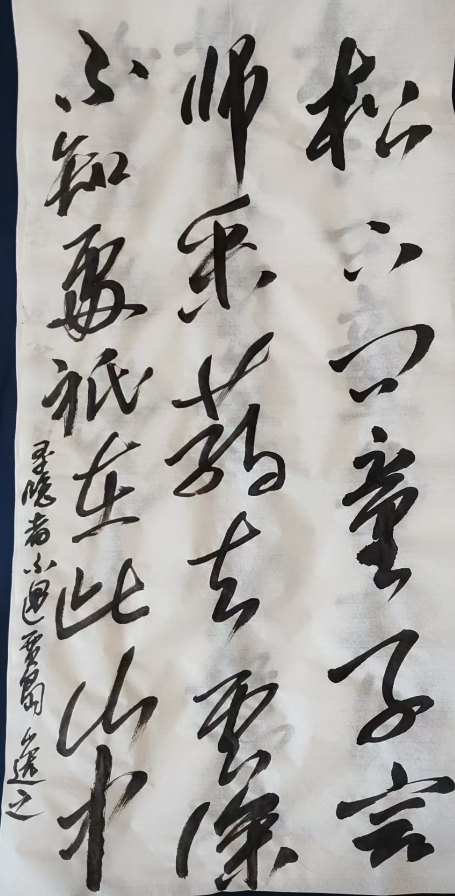 松下问童子言
师采药去云深
不知處祇在此山中
寻隐者不遇贾岛 逸之